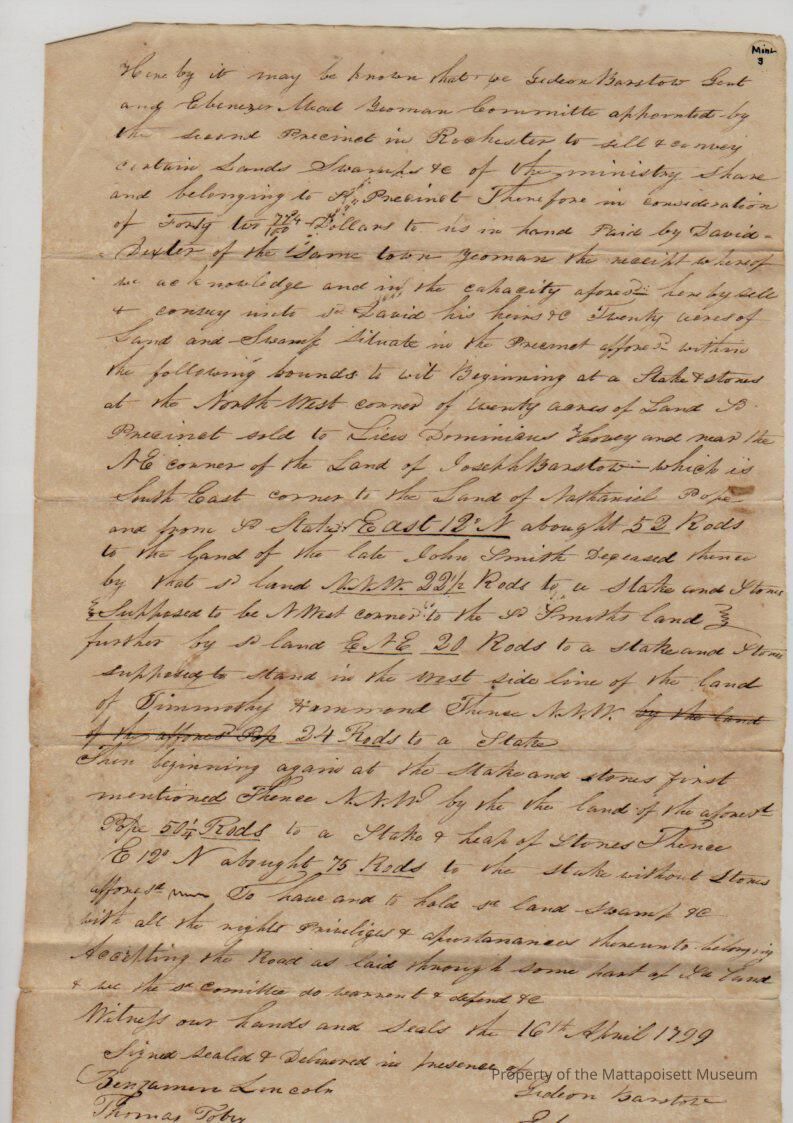 Mini
3
Hereby it may be known that we Gideon Barstow Gent
and Ebenezer Mead Yeoman Committe appointed by
the second Precinct in Rochester to sell & convey
certain Lands Swamps &c of the ministry share
and belonging to sd Precinct Therefore in consideration
of Forty two Dollars to us in hand Paid by David
Dexter of the same town Yeoman the receipt whereof
we acknowledge and in the capacity aforesd hereby sell
& convey unto sd David his heirs &c Twenty acres of
Land and Swamp Situate in the Precinct afforesd within
the following bounds to wit Beginning at a Stake & stones
at the North West corner of twenty acres of Land sd
Precinct sold to Dominicus Hovey and near the
NE corner of the Land of Joseph Barstow which is
South East corner to the Land of Nathaniel Pope
and from sd Stake East 12° N abought 52 Rods
to the land of the late John Smith Deceased thence
by that sd land N.N.W. 22 1/2 Rods to a stake and Stones
Supposed to be N West corner to the sd Smiths land
further by sd land E NE 20 Rods to a stake and Stones
supposed to stand in the west side line of the land
of Timmothy Hammond Thence N.N.W. by the land
of the afforesd Pope 24 Rods to a Stake
Then beginning again at the stake and stones first
mentioned Thence N.N.W. by the the land of the aforesd
Pope 50 1/4 Rods to a Stake & heap of Stones Thence
E 12° N abought 75 Rods to the stake without Stones
afforesd To have and to hold sd land swamp &c
with all the rights Priviliges & apurtanances thereunto belonging
Accepting the Road as laid through some part of sd land
& we the sd Comittee do warrent & defend &c
Witness our hands and seals the 16th April 1799
Signed sealed & Delivered in presence of
Benjamin Lincoln Gideon Barstow
Thomas Tobey
Property of the Mattapoisett Museum